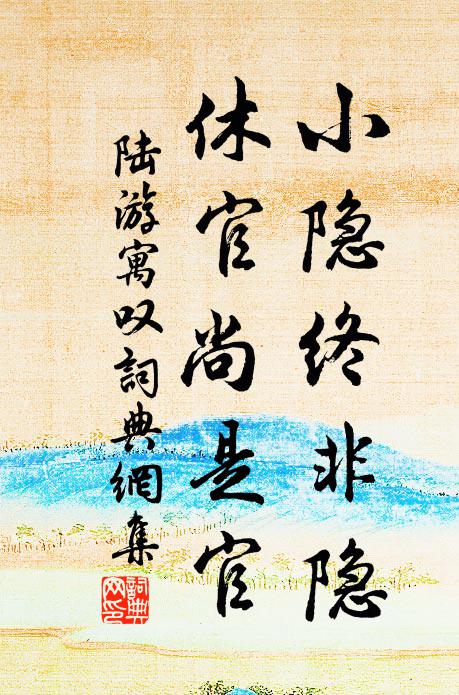 小隐终非隐
休官尚是官
陆游寓叹詞典網集
詞典